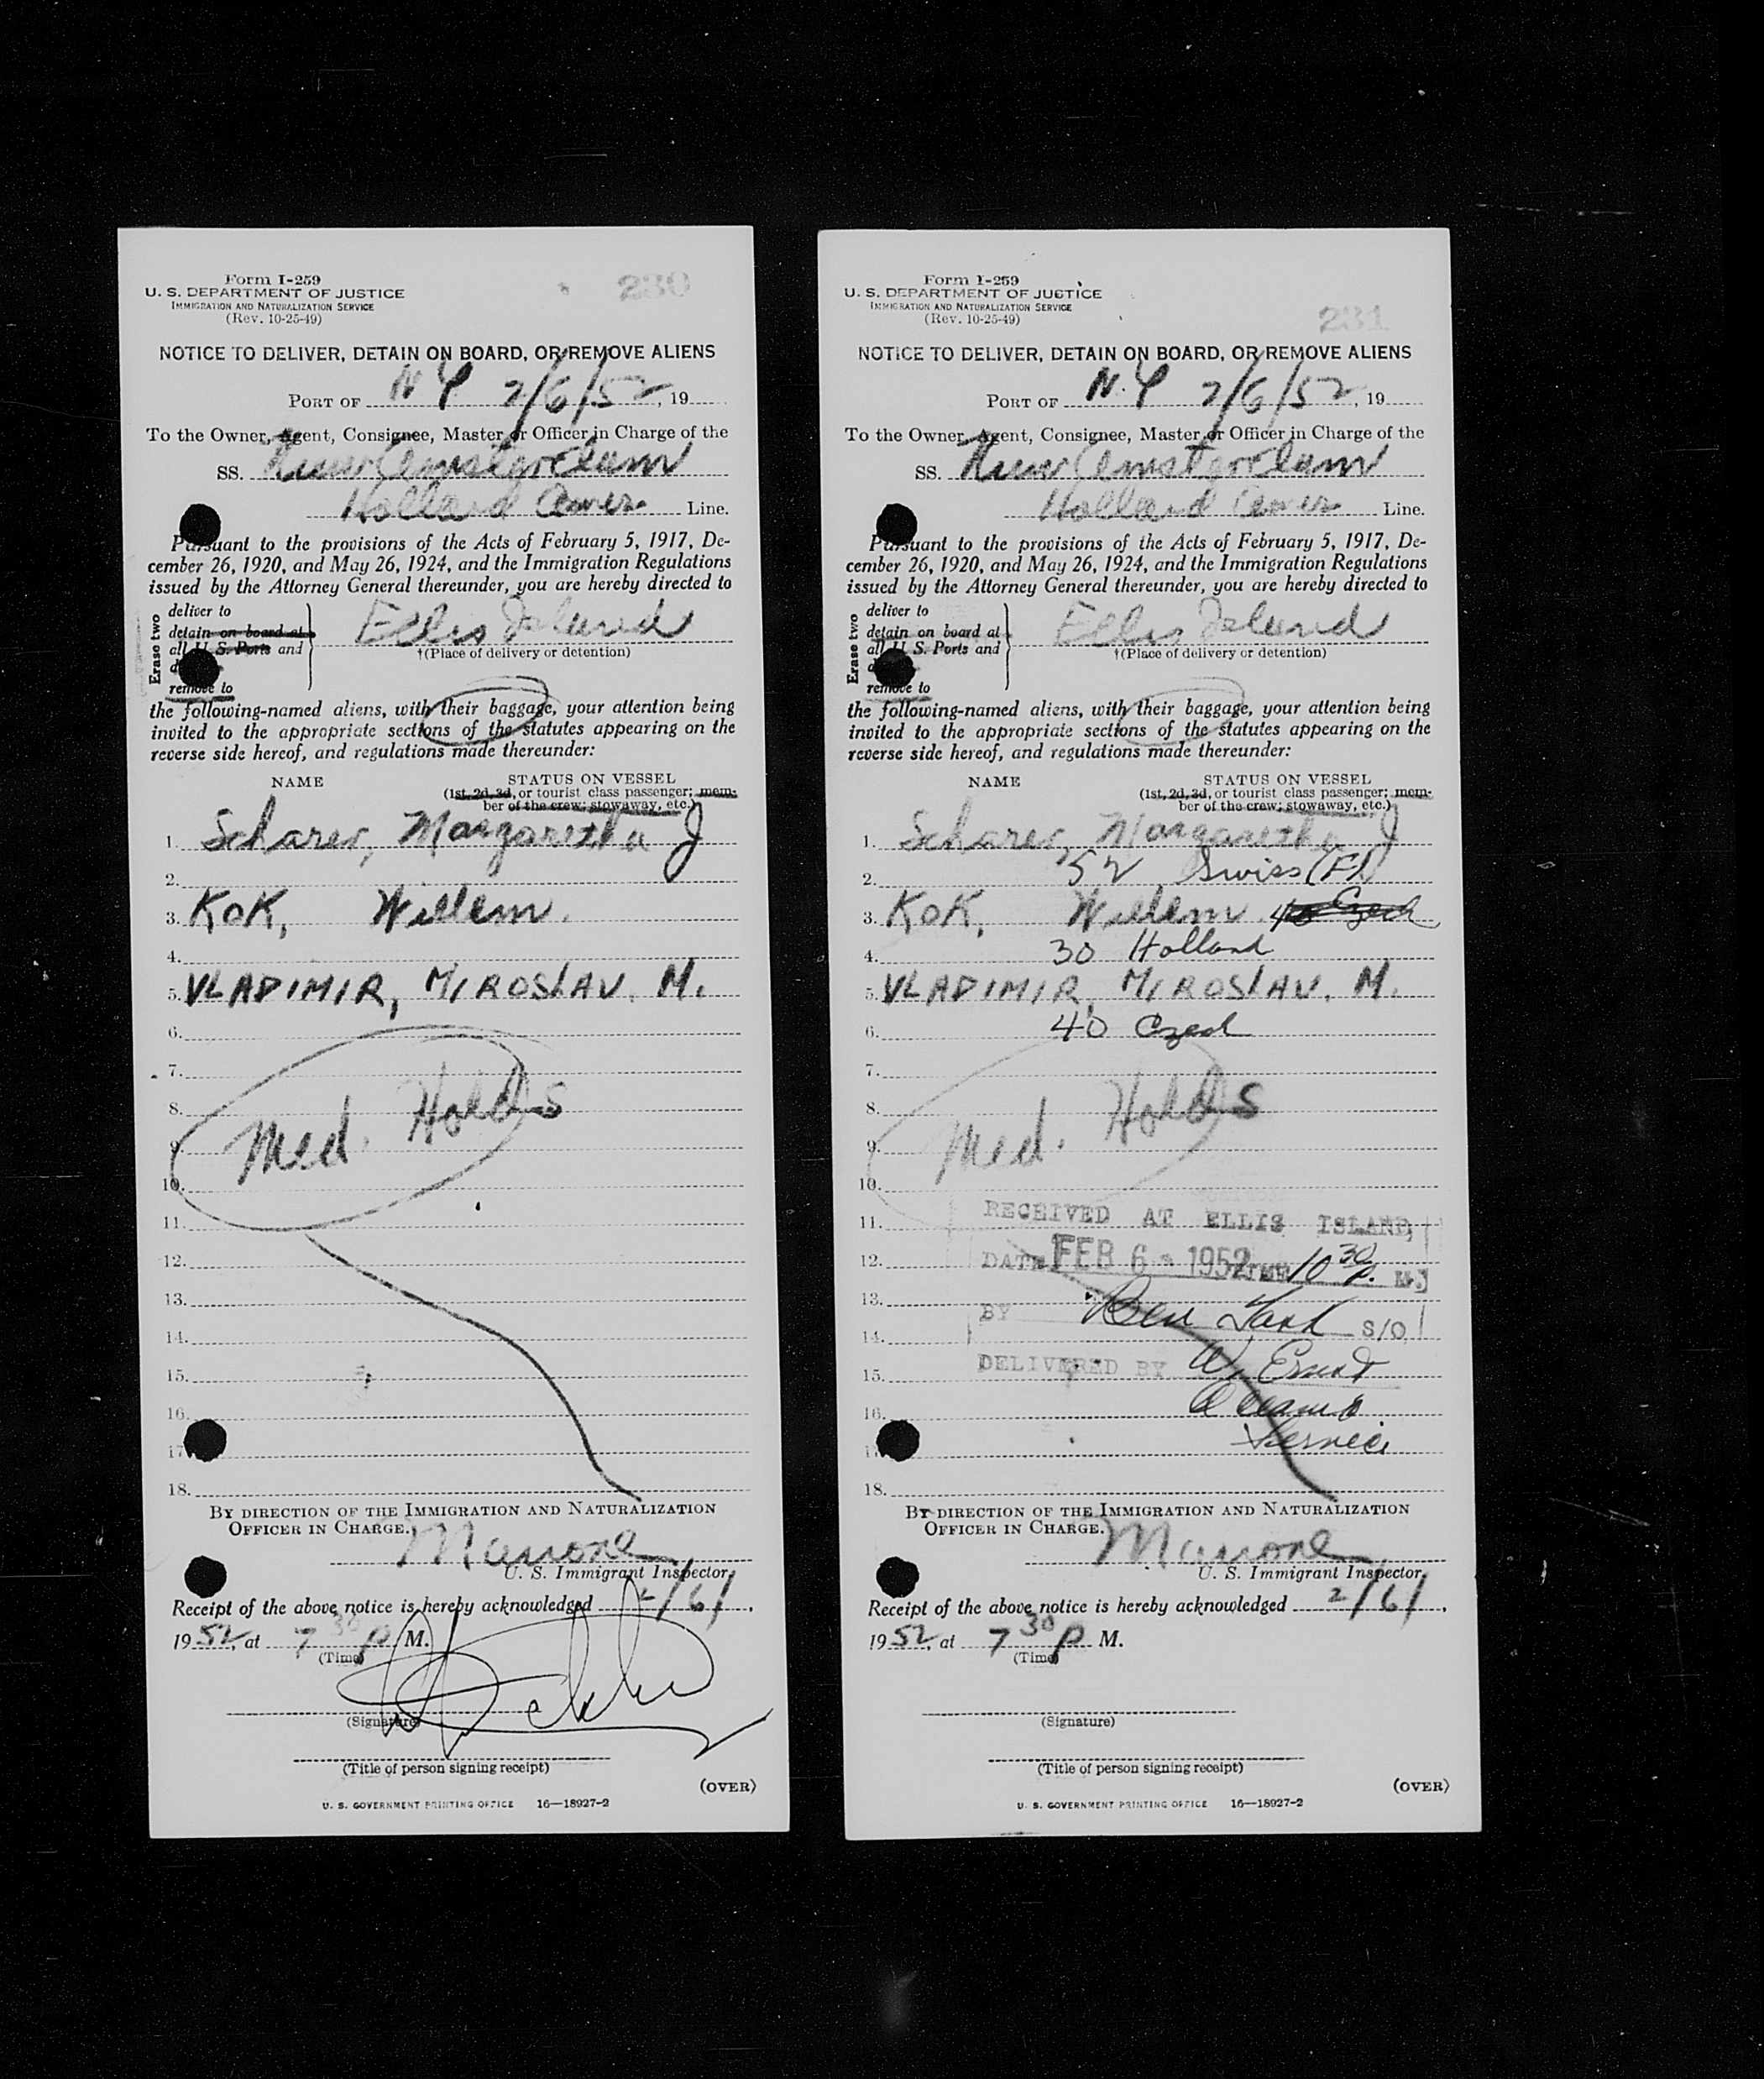 Form I-259
U. S. DEPARTMENT OF JUSTICE
IMMIGRATION AND NATURALIZATION SERVICE
(Rev. 10-25-49)
230
NOTICE TO DELIVER, DETAIN ON BOARD, OR REMOVE ALIENS
PORT OF N Y 2/6/52, 19
To the Owner, Agent, Consignee, Master or Officer in Charge of the
SS. Nieuw Amsterdam
Holland Amer. Line.
Pursuant to the provisions of the Acts of February 5, 1917, De-
cember 26, 1920, and May 26, 1924, and the Immigration Regulations
issued by the Attorney General thereunder, you are hereby directed to
Erase two
deliver to
detain on board at
all U. S. Ports and
remove to
Ellis Island
†(Place of delivery or detention)
the following-named aliens, with their baggage, your attention being
invited to the appropriate sections of the statutes appearing on the
reverse side hereof, and regulations made thereunder:
NAME STATUS ON VESSEL
(1st, 2d, 3d, or tourist class passenger; mem-
ber of the crew; stowaway, etc.)
1. Scharer, Margaretha J
2.
3. KOK, Willem.
4.
5. VLADIMIR, MIROSLAV. M.
6.
7.
8. Holds
9. Med.
10.
11.
12.
13.
14.
15.
16.
17.
18.
BY DIRECTION OF THE IMMIGRATION AND NATURALIZATION
OFFICER IN CHARGE.
U. S. Immigrant Inspector.
Receipt of the above notice is hereby acknowledged 2/6/,
19 52, at 7 30 P. M.
(Time)
(Signature)
(Title of person signing receipt)
(OVER)
U. S. GOVERNMENT PRINTING OFFICE 16—18927-2
Form I-259
U. S. DEPARTMENT OF JUSTICE
IMMIGRATION AND NATURALIZATION SERVICE
(Rev. 10-25-49)
231
NOTICE TO DELIVER, DETAIN ON BOARD, OR REMOVE ALIENS
PORT OF N. Y 2/6/52, 19
To the Owner, Agent, Consignee, Master or Officer in Charge of the
SS. Nieuw Amsterdam
Holland Amer. Line.
Pursuant to the provisions of the Acts of February 5, 1917, De-
cember 26, 1920, and May 26, 1924, and the Immigration Regulations
issued by the Attorney General thereunder, you are hereby directed to
Erase two
deliver to
detain on board at
all U. S. Ports and
remove to
Ellis Island
†(Place of delivery or detention)
the following-named aliens, with their baggage, your attention being
invited to the appropriate sections of the statutes appearing on the
reverse side hereof, and regulations made thereunder:
NAME STATUS ON VESSEL
(1st, 2d, 3d, or tourist class passenger; mem-
ber of the crew; stowaway, etc.)
1. Scharer, Margaretha J
2. 52 Swiss (F)
3. KOK, Willem 40 Czech
4. 30 Holland
5. VLADIMIR, MIROSLAV. M.
6. 40 Czech
7.
8. Holds
9. Med.
10.
11. RECEIVED AT ELLIS ISLAND,
12. DATE FEB 6 - 1952 TIME 10 30 P. M.
13.
BY Ben S/O
14.
15. DELIVERED BY W.
16.
17. Service
18.
BY DIRECTION OF THE IMMIGRATION AND NATURALIZATION
OFFICER IN CHARGE.
U. S. Immigrant Inspector.
Receipt of the above notice is hereby acknowledged 2/6/,
19 52, at 7 30 P. M.
(Time)
(Signature)
(Title of person signing receipt)
(OVER)
U. S. GOVERNMENT PRINTING OFFICE 16—18927-2